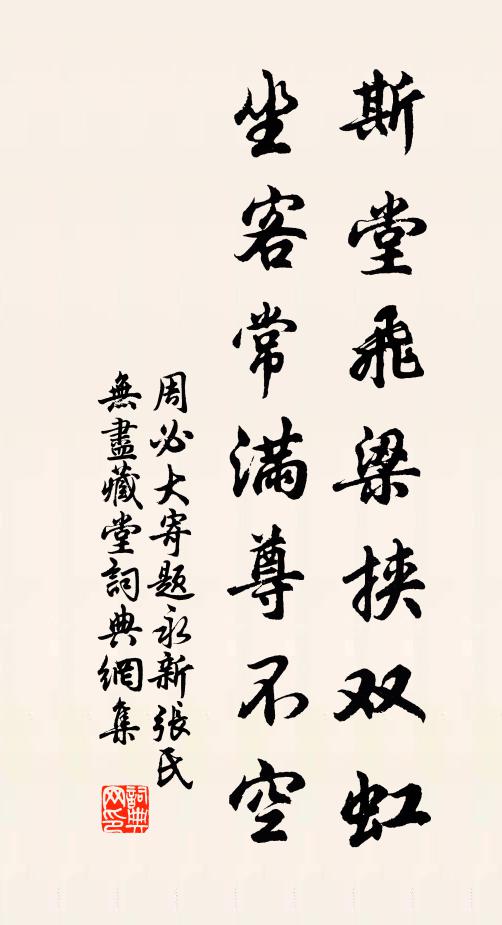 斯堂飛梁挾双虹
坐客常滿尊不空
周必大寄題永新張氏
無盡藏堂詞典網集
詞典
网印